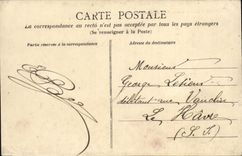 CARTE POSTALE
La correspondance au recto n'est pas acceptée par tous les pays étrangers
(Se renseigner à la Poste)
Partie réservée à la correspondance
Adresse du destinataire
Monsieur
George
débitant rue
Le Hâvre
(S. I.)